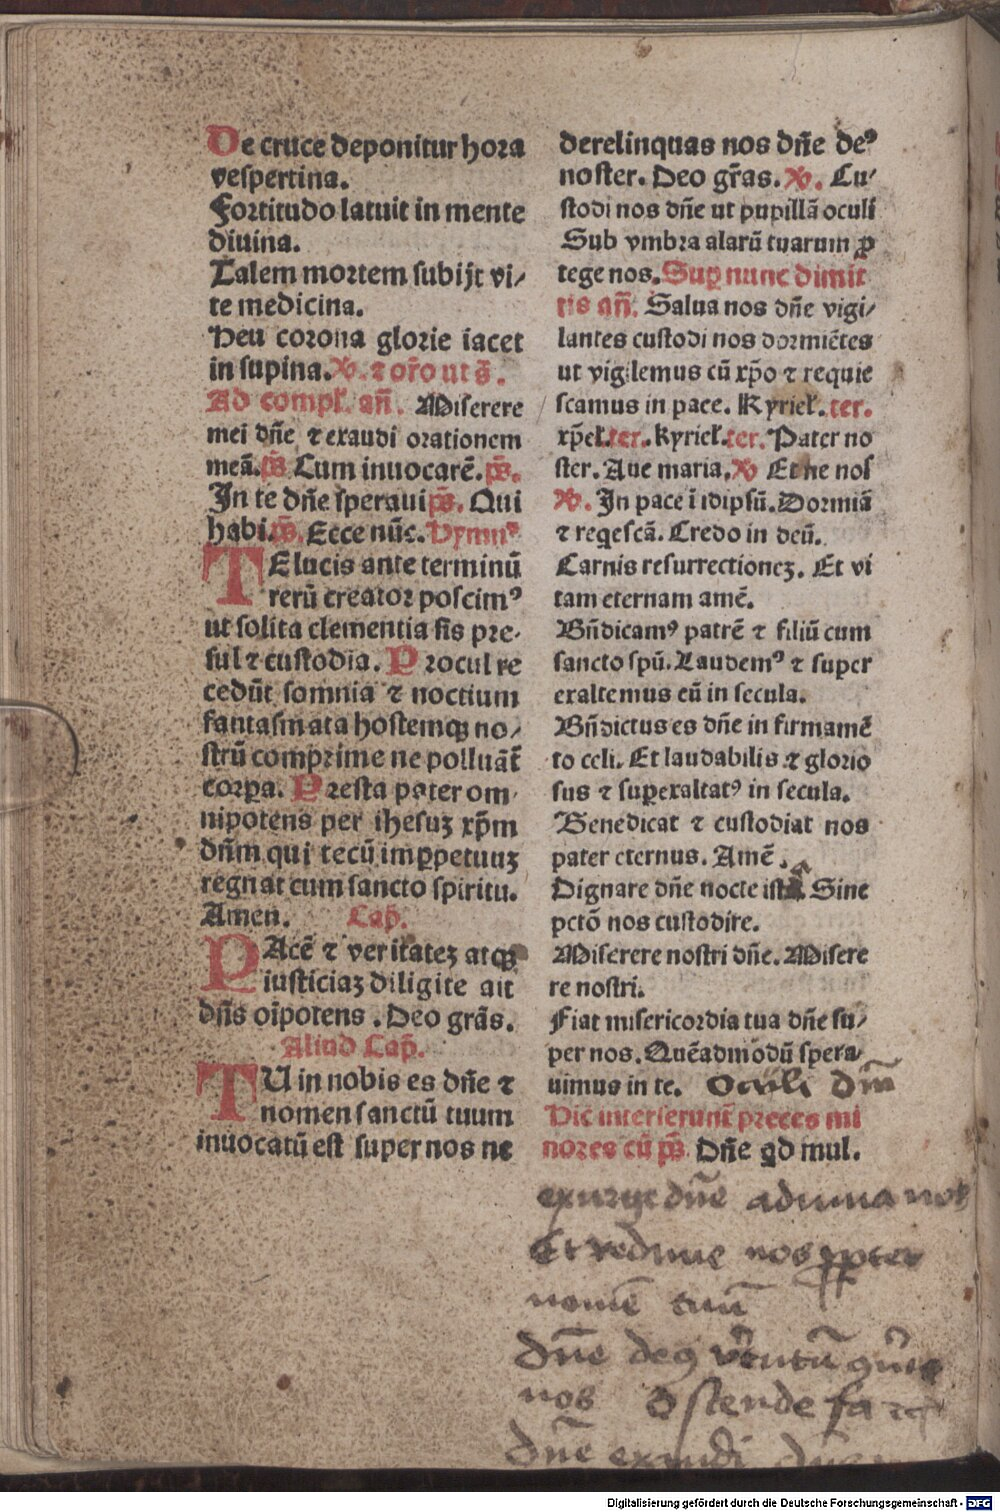 De cruce deponitur hora
vespertina.
Fortitudo latuit in mente
diuina.
Talem mortem subijt vi/
te medicina.
Heu corona glorie iacet
in supina. ℣. ⁊ or̃o ut s̄.
Ad compl̃. añ. Miserere
mei dñe ⁊ exaudi orationem
meã. p̄s Cum inuocarẽ. p̄s.
In te dñe speraui p̄s. Qui
habi. p̄s. Ecce nũc. Hymnꝰ
TElucis ante terminũ
rerũ creator poscimꝰ
ut solita clementia sis pre/
sul ⁊ custodia. Procul re
cedũt somnia ⁊ noctium
fantasmata hostemqꝫ no/
strũ comprime ne polluãt̃
corꝑa. Presta pater om
nipotens per ihesuꝫ xp̄m
dñm qui tecũ imꝑpetuuꝫ
regnat cum sancto spiritu.
Amen. Cap̃.
PAcẽ ⁊ veritateꝫ atqꝫ
iusticiaꝫ diligite ait
dñs oĩpotens. Deo grãs.
Aliud Cap̃.
TU in nobis es dñe ⁊
nomen sanctũ tuum
inuocatũ est super nos ne
derelinquas nos dñe deꝰ
noster. Deo gr̃as. ℣. Cu/
stodi nos dñe ut pupillã oculi
Sub vmbra alarũ tuarum ꝓ
tege nos. Suꝑ nunc dimit
tis añ. Salua nos dñe vigi/
lantes custodi nos dormiẽtes
ut vigilemus cũ xp̄o ⁊ requie
scamus in pace. Kyriel̃. ter.
xp̄el̃. ter. kyriel̃. ter. Pater no
ster. Aue maria. ℣ Et ne nos
℣. In pace ĩ idipsũ. Dormiã
⁊ reqescã. Credo in deũ.
Carnis resurrectioneꝫ. Et vi
tam eternam amẽ.
Bñdicamꝰ patrẽ ⁊ filiũ cum
sancto spũ. Laudemꝰ ⁊ super
exaltemus eũ in secula.
Bñdictus es dñe in firmamẽ
to celi. Et laudabilis ⁊ glorio
sus ⁊ suꝑexaltatꝰ in secula.
Benedicat ⁊ custodiat nos
pater eternus. Amẽ.
Dignare dñe nocte ista Sine
pctõ nos custodire.
Miserere nostri dñe. Misere
re nostri.
Fiat misericordia tua dñe su/
per nos. Quẽadmodũ spera/
uimus in te. Oculi dñi
Hic interserunt̃ preces mi
nores cũ p̄s. Dñe qd mul.
exurge dñe adiuua nos
Et redime nos ꝓpter
nomẽ tuũ
dñe deꝰ v̑tutũ
nos Ostende fa
dñe exaudi
Digitalisierung gefördert durch die Deutsche Forschungsgemeinschaft - DFG